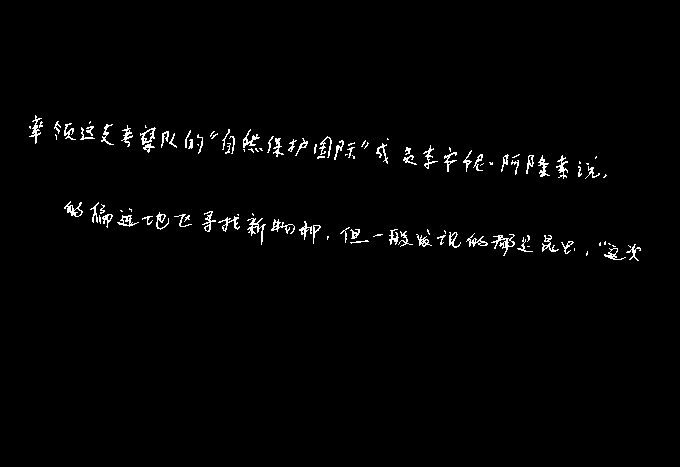 率领这支考察队的“自然保护国际”成员李安纳·阿隆索说,
的偏远地区寻找新物种,但一般发现的都是昆虫,“这次